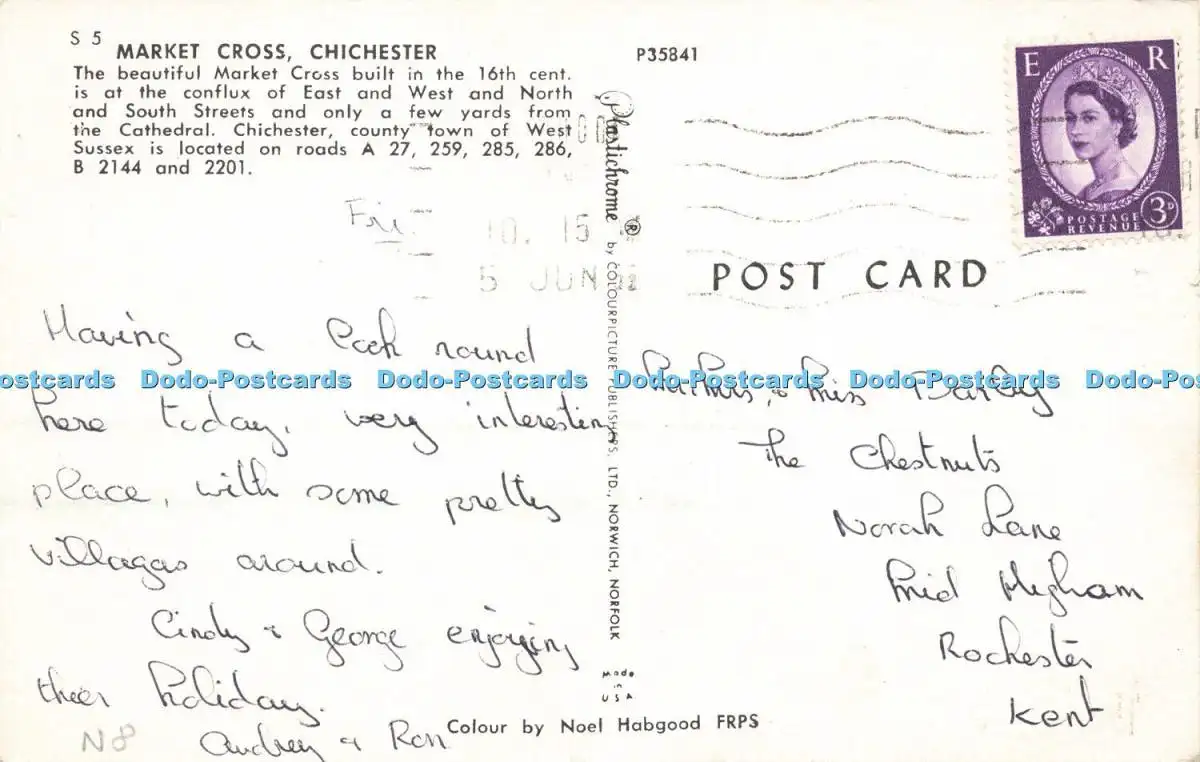 S 5
MARKET CROSS, CHICHESTER
The beautiful Market Cross built in the 16th cent.
is at the conflux of East and West and North
and South Streets and only a few yards from
the Cathedral. Chichester, county town of West
Sussex is located on roads A 27, 259, 285, 286,
B 2144 and 2201.
Fri.
10. 15
5 JUN
Having a look round
here today, very interesting
place, with some pretty
villages around.
Cindy & George enjoying
their holiday.
Audrey & Ron
N8
P35841
Plastichrome ® by COLOURPICTURE PUBLISHERS, LTD., NORWICH, NORFOLK
Made
in
USA
Colour by Noel Habgood FRPS
E R
POSTAGE
REVENUE
3D
POST CARD
Mr Mrs, & Miss Darby
The Chestnuts
Norah Lane
Mid Higham
Rochester
Kent
ostcards Dodo-Postcards Dodo-Postcards Dodo-Postcards Dodo-Postcards Dodo-Pos